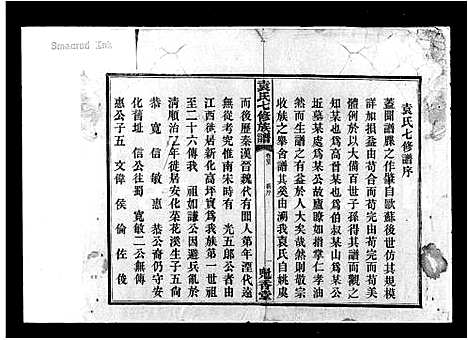 Smeared Ink
袁氏七修譜序
蓋聞譜牒之作肇自歐蘇後世仿其規模
詳加損益由苟合而苟完由苟完而苟美
可大可久以大備百世子孫得其譜而觀之
知某也為高曾某也為伯叔某山為某公
坵墓某處為某公故廬瞭如指掌仁孝油
然而生譜之有益於人大矣哉然則敬宗
收族之舉舍譜其奚由溯我袁氏自姚虞
袁氏七修族譜
卷首
譜序
一
而後歷秦漢晉魏代有聞人第年湮代遠
無從考究惟南宋時有 光五郎公者由
江西徙居新化高坪實為我族第一世祖
至二十六傳我 祖如謙公因避兵亂於
清順治乙年徙居安化茱花溪生子五尙
恭 寬 信 敏 惠 恭公裔仍守安
化舊址 信公往蜀 寬敏二公無傳
惠公子五 文偉 俊 倫 佐 俊